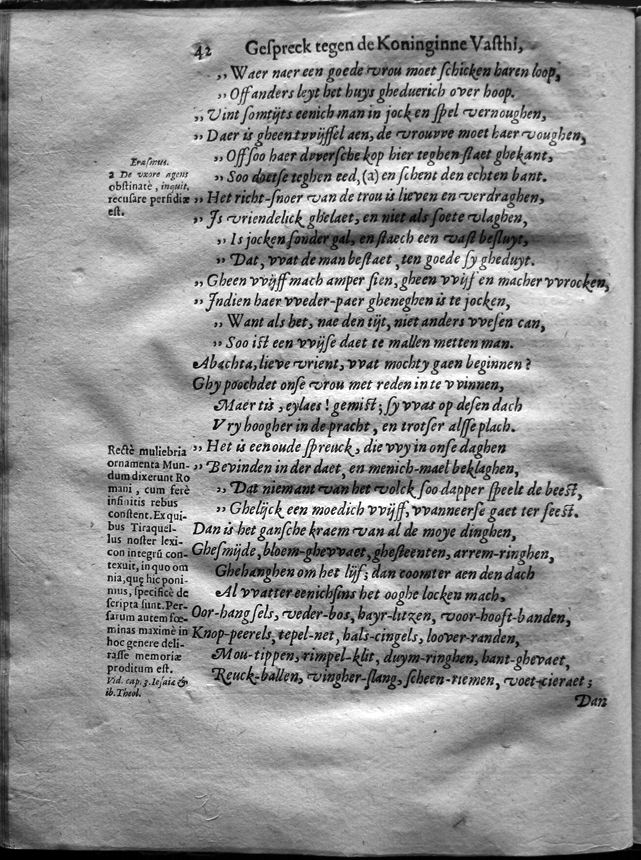 42 Geſpreck tegen de Koninginne Vaſthi,
„ Waer naer een goede vrou moet ſchicken haren loop,
„ Off anders leyt het huys gheduerich over hoop.
„ Vint ſomtijts eenich man in jock en ſpel vernoughen,
„ Daer is gheen tvvijffel aen, de vrouvve moet haer voughen,
„ Off ſoo haer dvverſche kop hier teghen ſtaet ghekant,
„ Soo doetſe teghen eed, (a) en ſchent den echten bant.
„ Het richt-ſnoer van de trou is lieven en verdraghen,
„ Js vriendelick ghelaet, en niet als ſoete vlaghen,
„ Is jocken ſonder gal, en ſtaech een vaſt beſluyt,
„ Dat, vvat de man beſtaet, ten goede ſy gheduyt.
„ Gheen vvijff mach amper ſien, gheen vvijf en mach er vvrocken,
„ Jndien haer vveder-paer gheneghen is te jocken,
„ Want als het, nae den tijt, niet anders vveſen can,
„ Soo iſt een vvijſe daet te mallen met ten man.
Abachta, lieve vrient, vvat mochty gaen beginnen?
Ghy poochdet onſe vrou met reden in te vvinnen,
Maer tis, eylaes! gemiſt; ſy vvas op deſen dach
Vry hoogher in de pracht, en trotſer alſſe plach.
„ Het is een oude ſpreuck, die vvy in onſe daghen
„ Bevinden in der daet, en menich-mael beklaghen,
„ Dat niemant van het volck ſoo dapper ſpeelt de beeſt,
„ Ghelijck een moedich vvijff, vvanneerſe gaet ter feeſt.
Dan is het ganſche kraem van al de moye dinghen,
Gheſmijde, bloem-ghevvaet, gheſteenten, arrem-ringhen,
Ghehanghen om het lijf; dan coomter aen den dach
Al vvatter eenichſins het ooghe locken mach,
Oor-hangſels, veder-bos, hayr-litzen, voor-hooft-banden,
Knop-peerels, tepel-net, hals-cingels, loover-randen,
Mou-tippen, rimpel-klit, duym-ringhen, hant-ghevaet,
Reuck-ballen, vingher-ſlang, ſcheen-riemen, voet-cieraet;
Dan
Eraſmus.
a De vxore agens
obſtinatè, inquit,
recuſare perfidiæ
eſt.
Rectè muliebria
ornamenta Mun-
dum dixerunt Ro
mani, cum ferè
infinitis rebus
conſtent. Ex qui-
bus Tiraquel-
lus noſter lexi-
con integrū con-
texuit, in quo om
nia, quę hic poni-
mus, ſpecificè de
ſcripta ſunt. Per-
ſarum autem fœ-
minas maximè in
hoc genere deli-
raſſe memoriæ
proditum eſt.
Vid. cap. 3. Ieſaiæ &
ib. Theol.